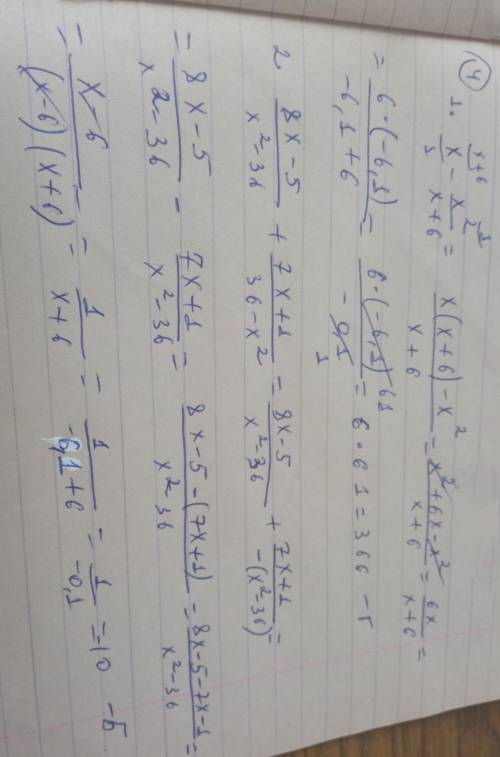 ④
1. x/1 ^(x+6) - x²/(x+6) ^1 = (x(x+6) - x²)/(x+6) = (x² + 6x - x²)/(x+6) = 6x/(x+6) =
= 6·(-6,1)/(-6,1+6) = 6·(-6,1) 61/(-0,1) 1 = 6·61 = 366
2 (8x-5)/(x²-36) + (7x+1)/(36-x²) = (8x-5)/(x²-36) + (7x+1)/(-(x²-36)) =
= (8x-5)/(x²-36) - (7x+1)/(x²-36) = (8x-5-(7x+1))/(x²-36) = (8x-5-7x-1)/(x²-36) =
= (x-6)/((x-6)(x+6)) = = 1/(x+6) = 1/(-6,1+6) = 1/(-0,1) =